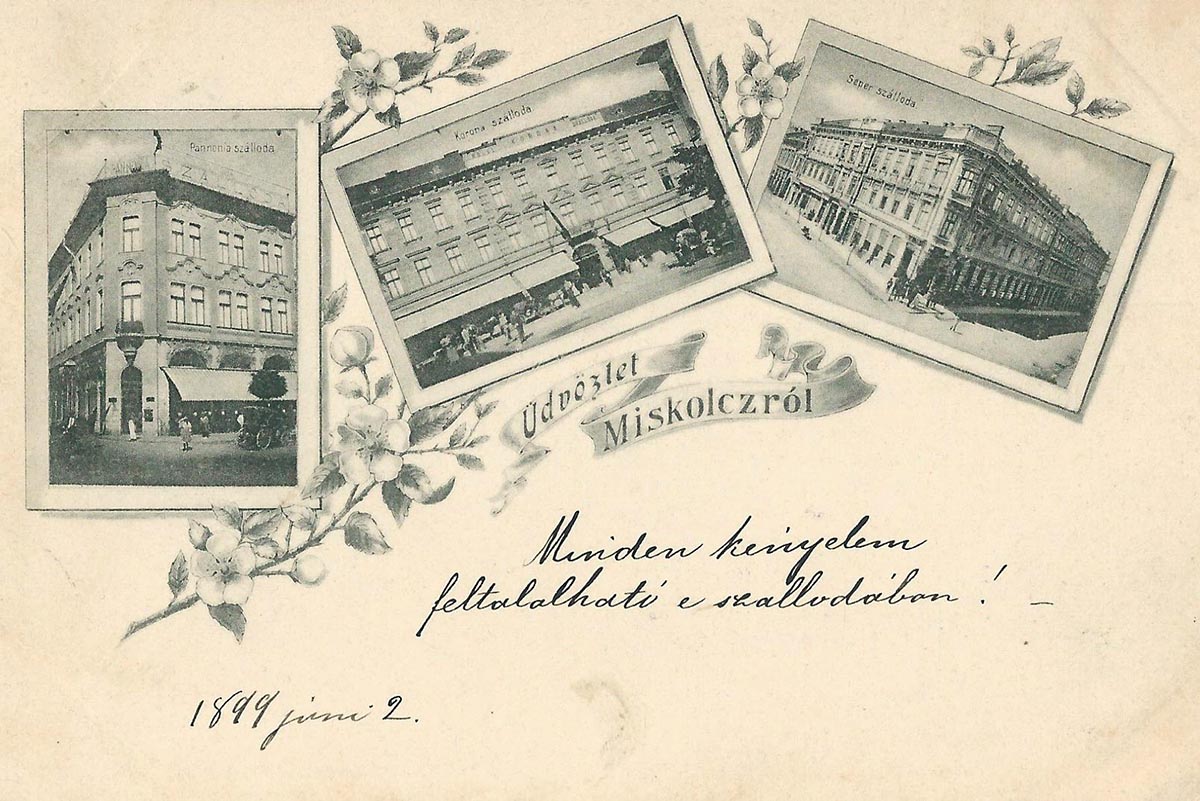 Pannonia szálloda
Korona szálloda
Seper szálloda
Üdvözlet
Miskolczról
Minden kényelem
feltalalható e szallodában! –
1899 júni 2.